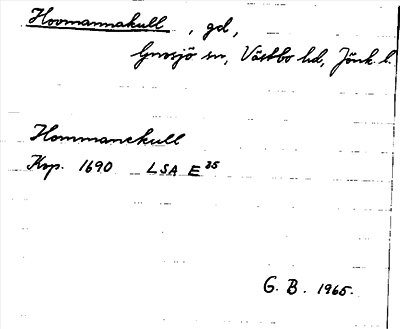 Hovmannakull, gd,
Gnosjö sn, Västbo hd, Jönk. l.
Hommanekull
Kop. 1690 LSA E 35
G. B. 1965.